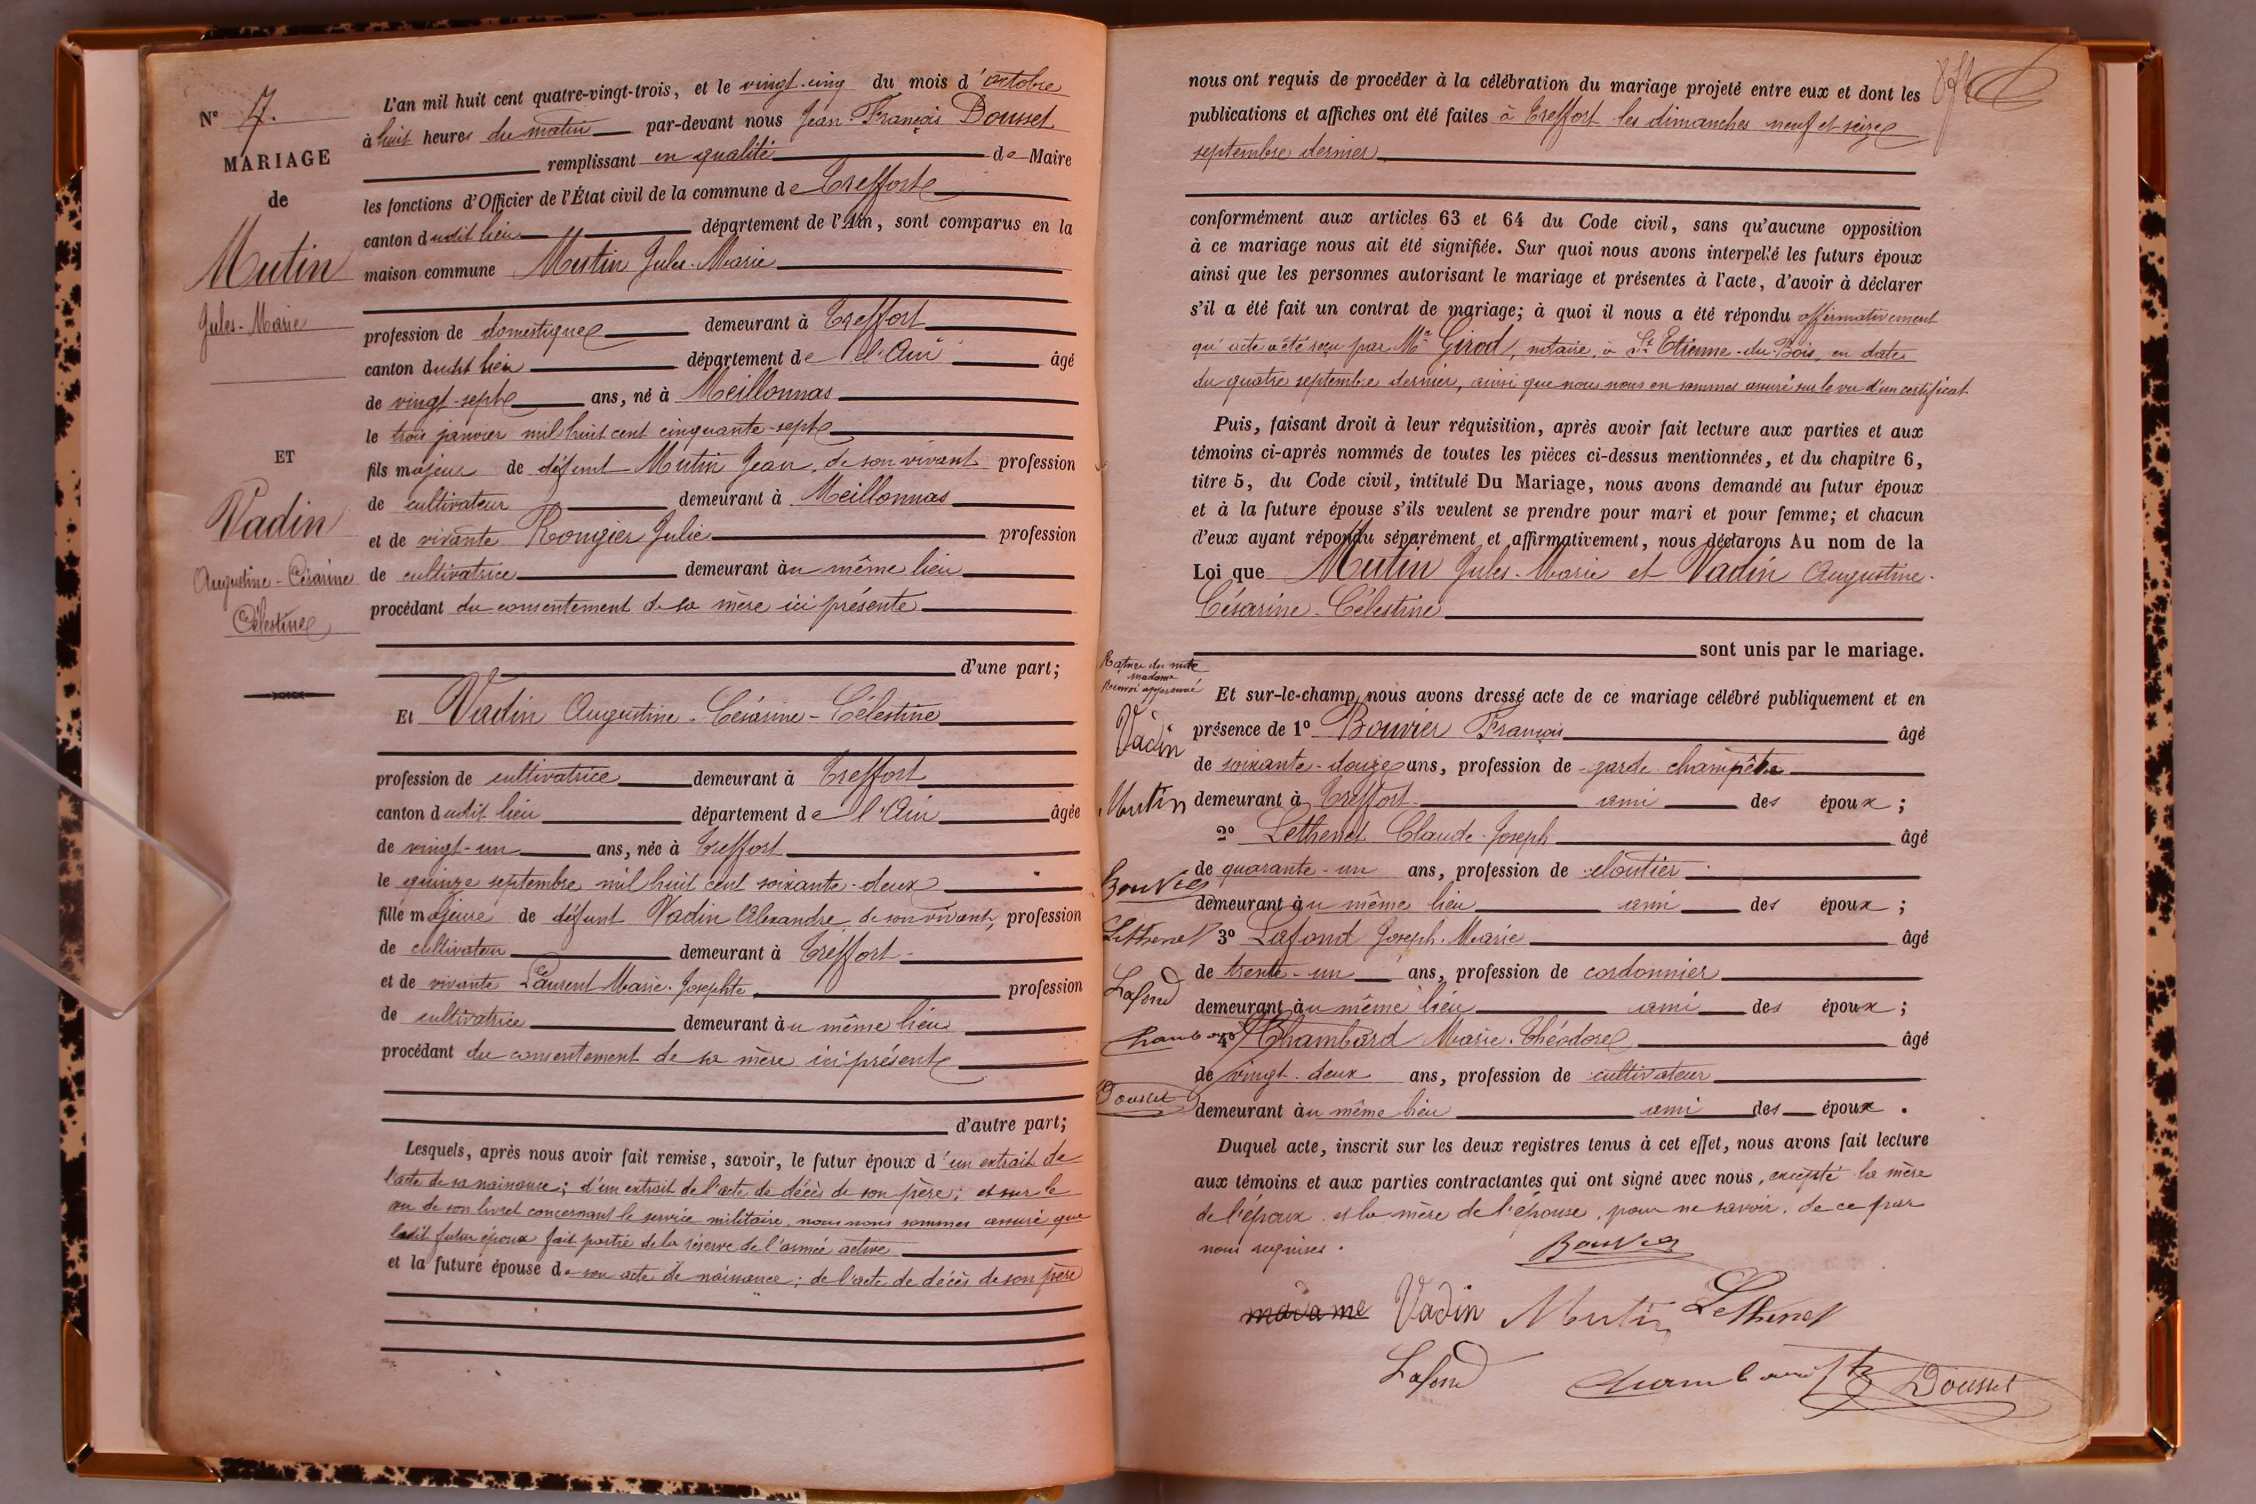 N° 7.
MARIAGE
de
Mutin
Jules-Marie
ET
Vadin
Augustine-Césarine
Célestine
L'an mil huit cent quatre-vingt-trois, et le vingt-cinq du mois d'octobre
à huit heures du matin par-devant nous Jean François Dousset
remplissant en qualité de Maire
les fonctions d'Officier de l'État civil de la commune de Treffort
canton dudit lieu département de l'Ain, sont comparus en la
maison commune Mutin Jules-Marie
profession de domestique demeurant à Treffort
canton dudit lieu département de l'Ain âgé
de vingt-sept ans, né à Meillonnas
le trois janvier mil huit cent cinquante-sept
fils majeur de défunt Mutin Jean, de son vivant profession
de cultivateur demeurant à Meillonnas
et de vivante Rongier Julie profession
de cultivatrice demeurant au même lieu
procédant du consentement de sa mère ici présente
d'une part;
Et Vadin Augustine-Césarine-Célestine
profession de cultivatrice demeurant à Treffort
canton dudit lieu département de l'Ain âgée
de vingt-un ans, née à Treffort
le quinze septembre mil huit cent soixante-deux
fille majeure de défunt Vadin Alexandre, de son vivant, profession
de cultivateur demeurant à Treffort
et de vivante Laurent Marie-Josephte profession
de cultivatrice demeurant au même lieu
procédant du consentement de sa mère ici présente
d'autre part;
Lesquels, après nous avoir fait remise, savoir, le futur époux d'un extrait de
l'acte de sa naissance; d'un extrait de l'acte de décès de son père; et sur le
vu de son livret concernant le service militaire, nous nous sommes assuré que
ledit futur époux fait partie de la réserve de l'armée active
et la future épouse de son acte de naissance; de l'acte de décès de son père
nous ont requis de procéder à la célébration du mariage projeté entre eux et dont les
publications et affiches ont été faites à Treffort les dimanches neuf et seize
septembre dernier
conformément aux articles 63 et 64 du Code civil, sans qu'aucune opposition
à ce mariage nous ait été signifiée. Sur quoi nous avons interpellé les futurs époux
ainsi que les personnes autorisant le mariage et présentes à l'acte, d'avoir à déclarer
s'il a été fait un contrat de mariage; à quoi il nous a été répondu affirmativement
qu'acte a été reçu par Me Girod, notaire, à St Etienne-du-Bois, en date
du quatre septembre dernier, ainsi que nous nous en sommes assuré sur le vu d'un certificat
Puis, faisant droit à leur réquisition, après avoir fait lecture aux parties et aux
témoins ci-après nommés de toutes les pièces ci-dessus mentionnées, et du chapitre 6,
titre 5, du Code civil, intitulé Du Mariage, nous avons demandé au futur époux
et à la future épouse s'ils veulent se prendre pour mari et pour femme; et chacun
d'eux ayant répondu séparément et affirmativement, nous déclarons Au nom de la
Loi que Mutin Jules-Marie et Vadin Augustine-
Césarine-Célestine
sont unis par le mariage.
Rature du mot
madame
Renvoi approuvé
Vadin
Mutin
Bouvier
Lethenet
Lafond
Chambard
Dousset
Et sur-le-champ, nous avons dressé acte de ce mariage célébré publiquement et en
présence de 1° Bouvier François âgé
de soixante-douze ans, profession de garde champêtre
demeurant à Treffort ami des époux;
2° Lethenet Claude-Joseph âgé
de quarante-un ans, profession de cloutier
demeurant au même lieu ami des époux;
3° Lafond Joseph-Marie âgé
de trente-un ans, profession de cordonnier
demeurant au même lieu ami des époux;
4° Chambard Marie-Théodore âgé
de vingt-deux ans, profession de cultivateur
demeurant au même lieu ami des époux.
Duquel acte, inscrit sur les deux registres tenus à cet effet, nous avons fait lecture
aux témoins et aux parties contractantes qui ont signé avec nous, excepté la mère
de l'époux et la mère de l'épouse, pour ne savoir, de ce par
nous requises.
Bouvier
madame Vadin Mutin Lethenet
Lafond Chambard Dousset